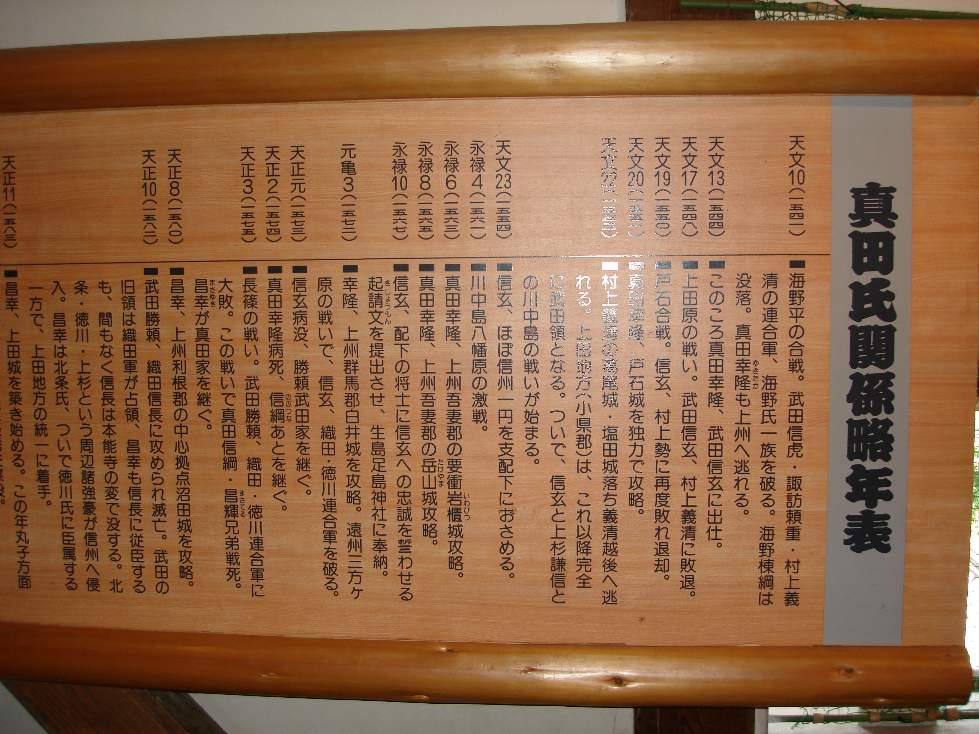 真田氏関係略年表
天文10(一五四一)
■海野平の合戦。武田信虎・諏訪頼重・村上義
清の連合軍、海野氏一族を破る。海野棟綱は
没落。真田幸隆も上州へ逃れる。
天文13(一五四四)
■このころ真田幸隆、武田信玄に出仕。
天文17(一五四八)
■上田原の戦い。武田信玄、村上義清に敗退。
天文19(一五五〇)
■戸石合戦。信玄、村上勢に再度敗れ退却。
天文20(一五五一)
■真田幸隆、戸石城を独力で攻略。
天文22(一五五三)
■村上義清の葛尾城、塩田城落ち義清越後へ逃
れる。上田地方(小県郡)は、これ以降完全
に武田領となる。ついで、信玄と上杉謙信と
の川中島の戦いが始まる。
天文23(一五五四)
■信玄、ほぼ信州一円を支配下におさめる。
永禄4(一五六一)
■川中島八幡原の激戦。
永禄6(一五六三)
■真田幸隆、上州吾妻郡の要衝岩櫃城攻略。
永禄8(一五六五)
■真田幸隆、上州吾妻郡の岳山城攻略。
永禄10(一五六七)
■信玄、配下の将士に信玄への忠誠を誓わせる
起請文を提出させ、生島足島神社に奉納。
元亀3(一五七二)
■幸隆、上州群馬郡白井城を攻略。遠州三方ヶ
原の戦いで、信玄、織田・徳川連合軍を破る。
天正元(一五七三)
■信玄病没、勝頼武田家を継ぐ。
天正2(一五七四)
■真田幸隆病死、信綱あとを継ぐ。
天正3(一五七五)
■長篠の戦い。武田勝頼、織田・徳川連合軍に
大敗。この戦いで真田信綱・昌輝兄弟戦死。
昌幸が真田家を継ぐ。
天正8(一五八〇)
■昌幸、上州利根郡の中心拠点沼田城を攻略。
天正10(一五八二)
■武田勝頼、織田信長に攻められ滅亡。武田の
旧領は織田軍が占領、昌幸も信長に従臣する
も、間もなく信長は本能寺の変で没する。北
条・徳川・上杉という周辺諸強豪が信州へ侵
入。昌幸は北条氏、ついで徳川氏に臣属する
一方で、上田地方の統一に着手。
天正11(一五八三)
■昌幸、上田城を築き始める。この年丸子方面